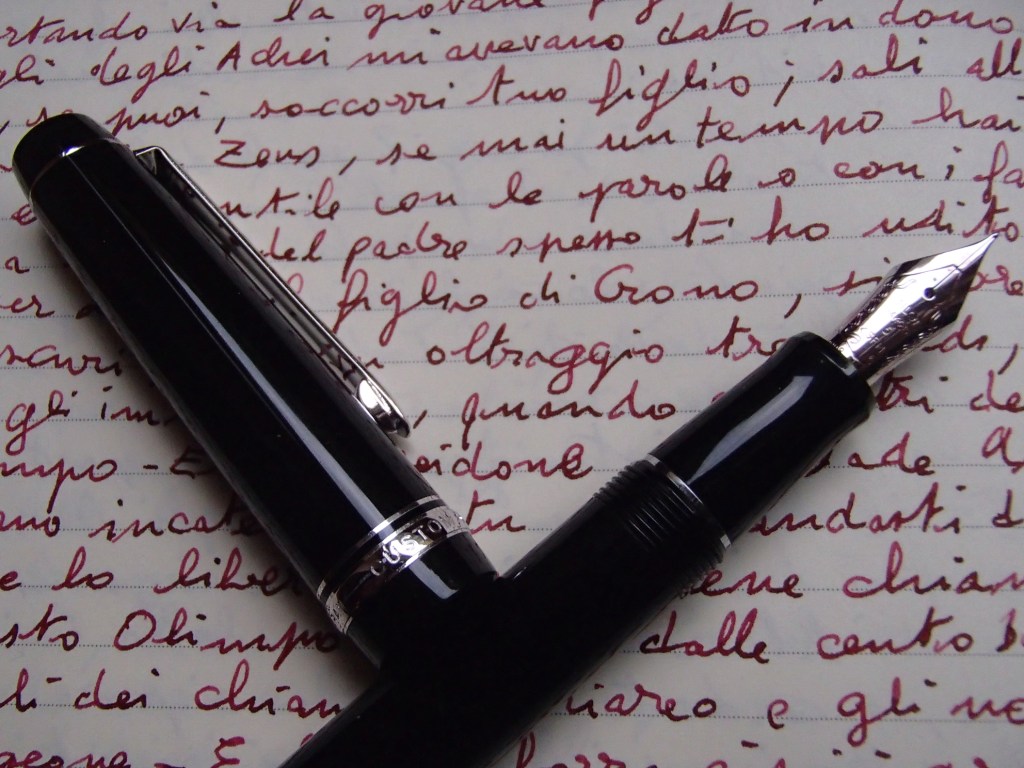 rtando via la giovane
gli degli Achei mi avevano dato in dono
, se puoi, soccorri tuo figlio; sali all
Zeus, se mai un tempo hai
ntile con le parole o con i fa
del padre spesso ti ho udito
figlio di Crono, si
oltraggio tra di,
gli im , quando tri de
mpo - E eidone ade A
ano incate tu andasti d
e lo liber ene chiam
sto Olimpo dalle cento b
li dei chiam iareo e gli uo
geone - E
CUSTOM